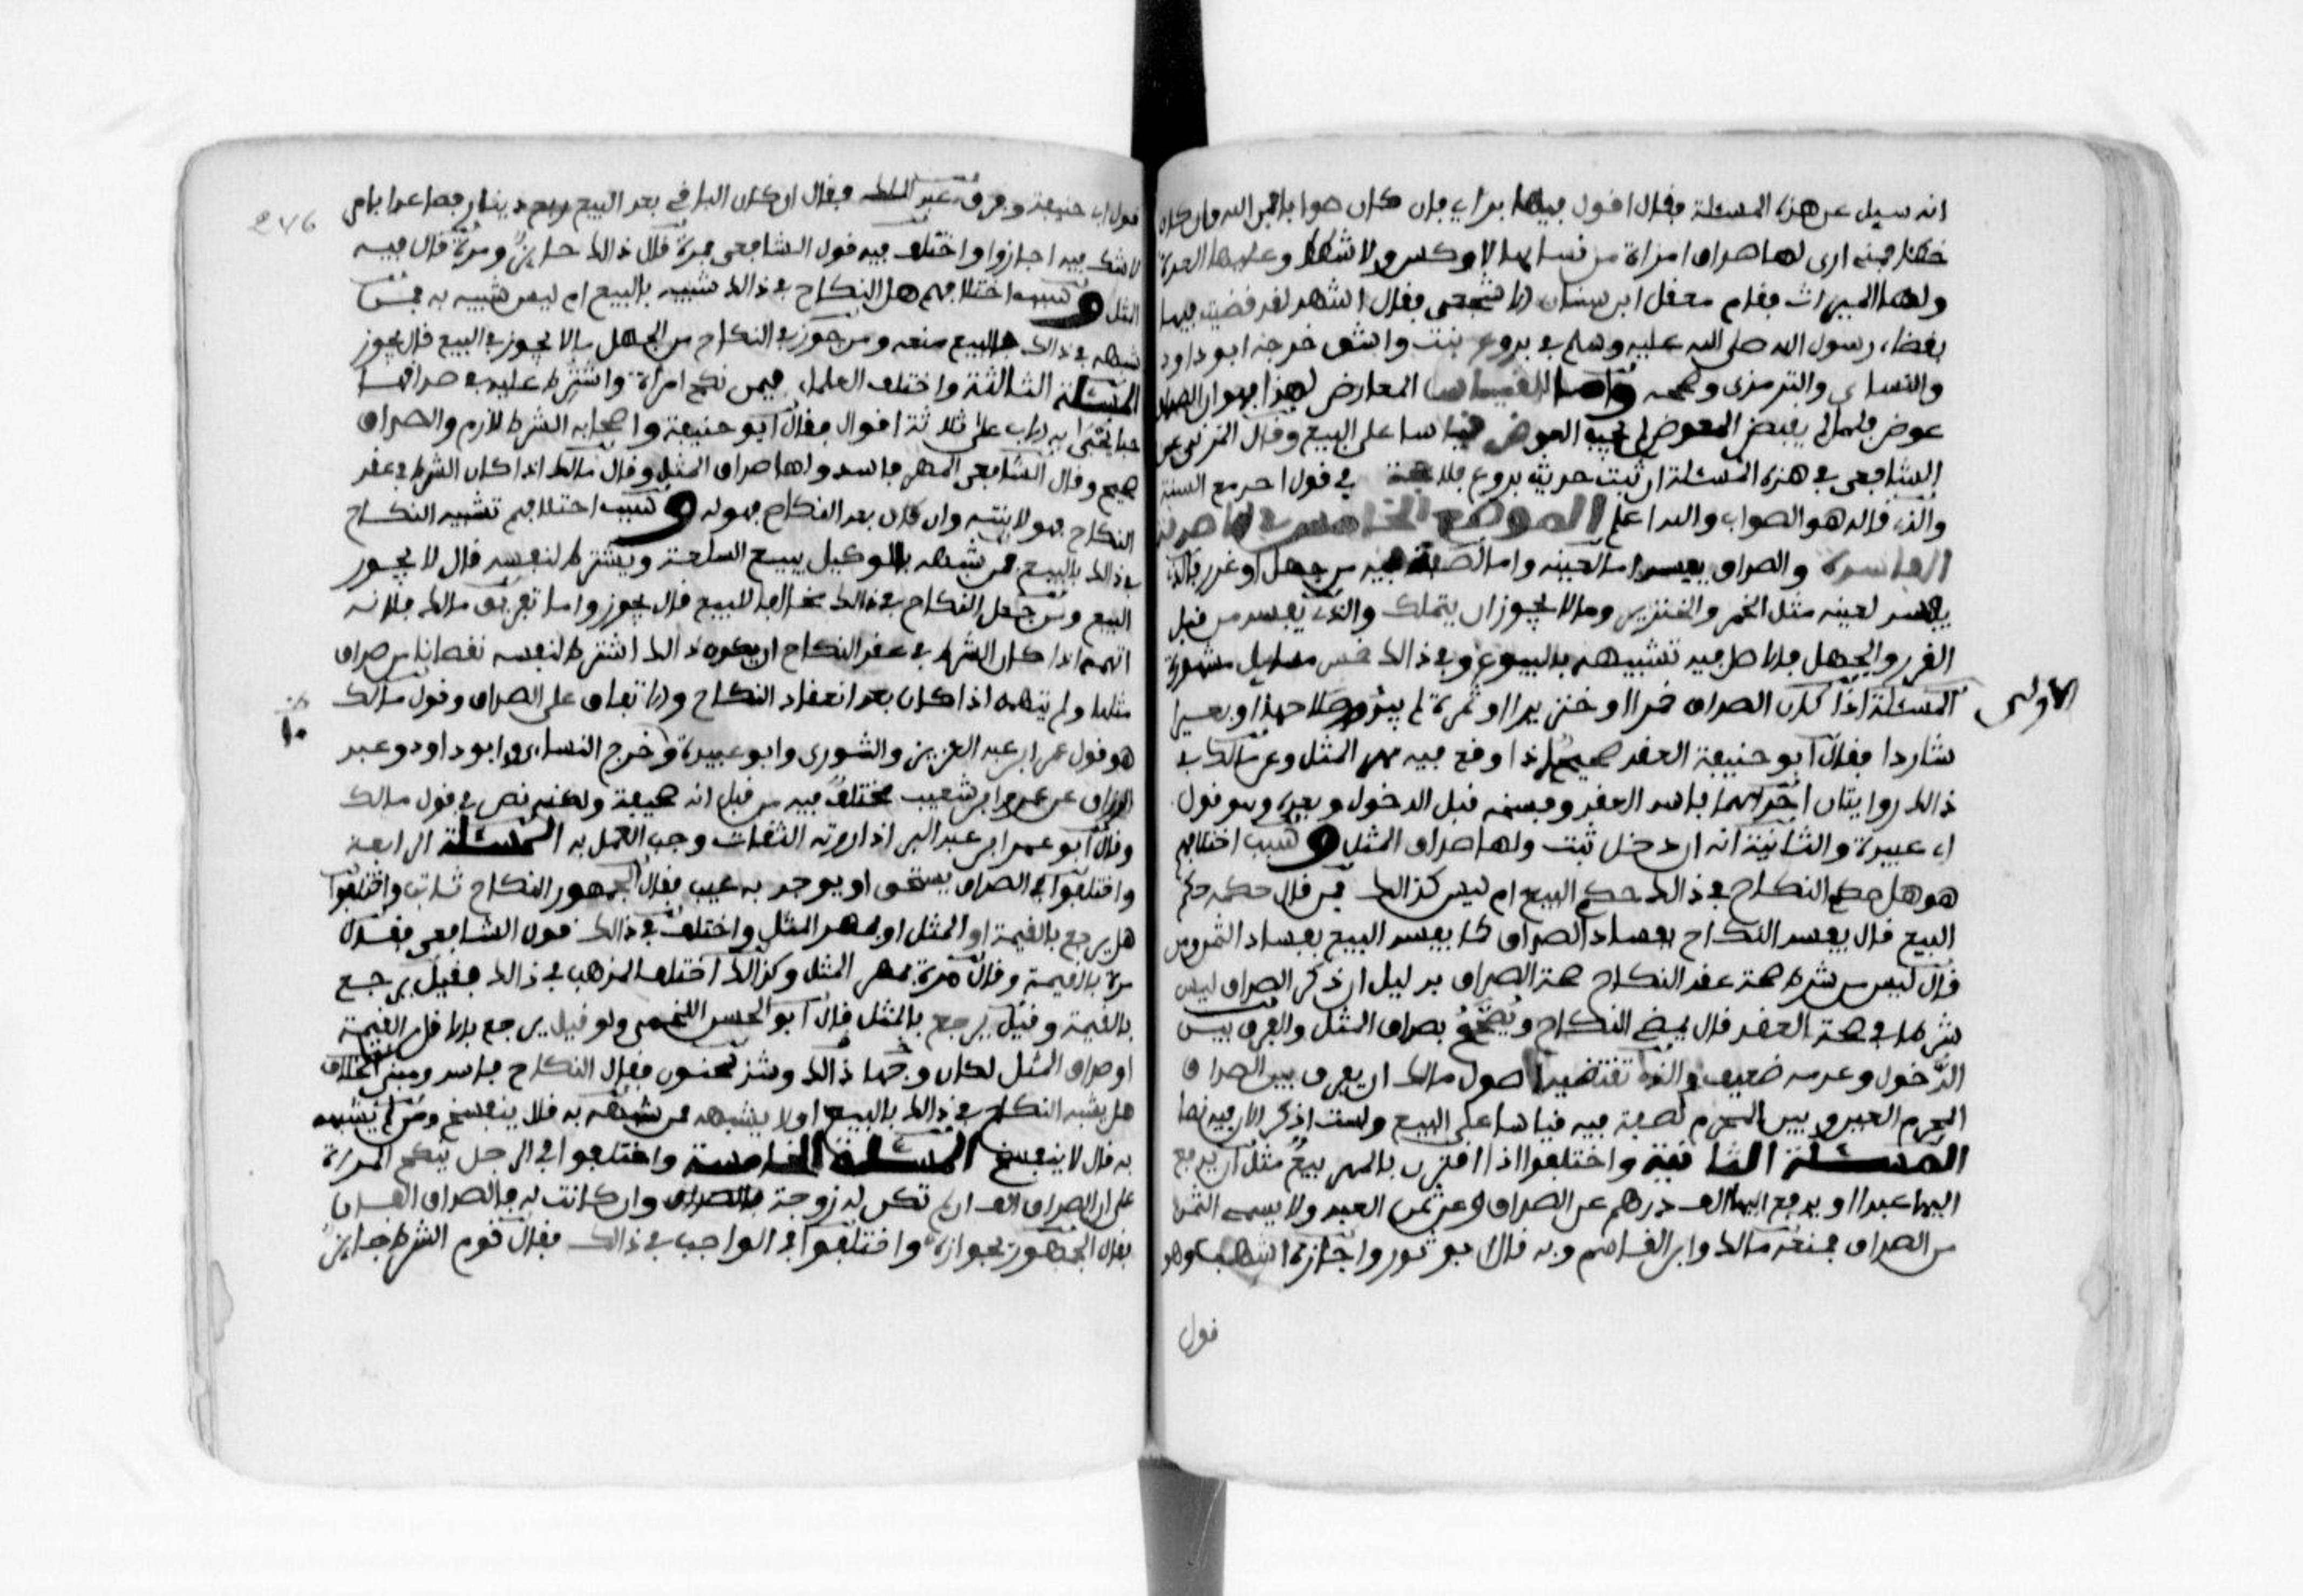 انه سيل عن هذه المسئلة فقال اقول فيها براي فان كان صوابا فمن الله وان كان
خطئا فمنى ارى لها صداق امراة من نسايها لا وكس ولا شطط وعليها العدة
ولها الميراث فقام معقل ابن سنان الاشجعى فقال اشهد لقد قضيت فيها
بقضاء رسول الله صلى الله عليه وسلم في بروع بنت واشق خرجه ابو داود
والنساي والترمذى وصححه واما القياس المعارض لهذا فهو ان الصداق
عوض فلما لم يقبض المعوض لم يجب العوض قياسا على البيع وقال المزني عن
الشافعى في هذه المسئلة ان ثبت حديث بروع فلا حجة في قول احد مع السنة
والذي قاله هو الصواب والله اعلم الموضع الخامس في الاصدقة
الفاسدة والصداق يفسد اما لعينه واما لصفة فيه من جهل او غرر فالذي
يفسد لعينه مثل الخمر والخنزير وما لا يجوز ان يتملك والذي يفسد من قبل
الغرر والجهل فالاصل فيه تشبيهه بالبيوع وفي ذالك خمس مسايل مشهورة
الاولى
المسئلة اذا كان الصداق خمرا او خنزيرا او ثمرة لم يبدو صلاحها او بعيرا
شاردا فقال ابو حنيفة العقد صحيح اذا وقع فيه مهر المثل وعن مالك في
ذالك روايتان احداهما فاسد العقد وفسخه قبل الدخول وبعده وهو قول
ابي عبيدة والثانية انه ان دخل ثبت ولها صداق المثل وسبب اختلافهم
هو هل حكم النكاح في ذالك حكم البيع ام ليس كذالك فمن قال حكمه حكم
البيع قال يفسد النكاح بفساد الصداق كما يفسد البيع بفساد الثمن ومن
قال ليس من شرط صحة عقد النكاح صحة الصداق بدليل ان ذكر الصداق ليس
شرطا في صحة العقد قال يمضي النكاح ويصحح بصداق المثل والفرق بين
الدخول وعدمه ضعيف والذي تقتضيه اصول مالك ان يفرق بين الصداق
المحرم العين وبين المحرم لصفة فيه قياسا على البيع ولست اذكر الان فيه نصا
المسئلة الثانية واختلفوا اذا اقترن بالمهر بيع مثل ان يدفع
اليها عبدا او يدفع اليها الف درهم عن الصداق وعن ثمن العبد ولا يسمى الثمن
من الصداق فمنعه مالك وابن القاسم وبه قال ابو ثور واجازه اشهب وهو
قول
276
قول ابي حنيفة وفرق عبد الملك فقال ان كان الباقي بعد البيع ربع دينار فصاعدا بامر
لا شك فيه اجازوا واختلف فيه قول الشافعى فمرة قال ذالك جايز ومرة قال فيه
المثل وسبب اختلافهم هل النكاح في ذالك شبيه بالبيع ام ليس شبيه به فمن
شبهه في ذالك بالبيع منعه ومن جوز في النكاح من الجهل ما لا يجوز في البيع قال يجوز
المسئلة الثالثة واختلف العلماء فيمن نكح امراة واشترط عليه في صداقها
حبا يحبى به الاب على ثلاثة اقوال فقال ابو حنيفة واصحابه الشرط لازم والصداق
صحيح وقال الشافعى المهر فاسد ولها صداق المثل وقال مالك اذا كان الشرط في عقد
النكاح فهو لابنته وان كان بعد النكاح فهو له وسبب اختلافهم تشبيه النكاح
في ذالك بالبيع فمن شبهه بالوكيل يبيع السلعة ويشترط لنفسه قال لا يجوز
البيع ومن جعل النكاح في ذالك مخالفا للبيع قال يجوز واما تفريق مالك فلانه
اتهمه اذا كان الشرط في عقد النكاح ان يكون ذالك اشترط لنفسه نقصانا من صداق
مثلها ولم يتهمه اذا كان بعد انعقاد النكاح والاتفاق على الصداق وقول مالك
هو قول عمر ابن عبد العزيز والثوري وابو عبيدة وخرج النساي وابو داود وعبد
الرزاق عن عمرو ابن شعيب مختلف فيه من قبل انه صحيفة ولكنه نص في قول مالك
وقال ابو عمر ابن عبد البر اذا روته الثقات وجب العمل به المسئلة الرابعة
واختلفوا في الصداق يستحق او يوجد به عيب فقال الجمهور النكاح ثابت واختلفوا
هل يرجع بالقيمة او المثل او بمهر المثل واختلف في ذالك قول الشافعى فقال
مرة بالقيمة وقال مرة بمهر المثل وكذالك اختلف المذهب في ذالك فقيل يرجع
بالقيمة وقيل يرجع بالمثل قال ابو الحسن اللخمى ولو قيل يرجع بالاقل من القيمة
او صداق المثل لكان وجها ذالك وشذ سحنون فقال النكاح فاسد ومبنى الخلاف
هل يشبه النكاح في ذالك بالبيع او لا يشبهه فمن شبهه به قال ينفسخ ومن لم يشبهه
به قال لا ينفسخ المسئلة الخامسة واختلفوا في الرجل ينكح المراة
على ان الصداق الف ان لم تكن له زوجة وان كانت له فالصداق الفان
فقال الجمهور بجوازه واختلفوا في الواجب في ذالك فقال قوم الشرط جايز